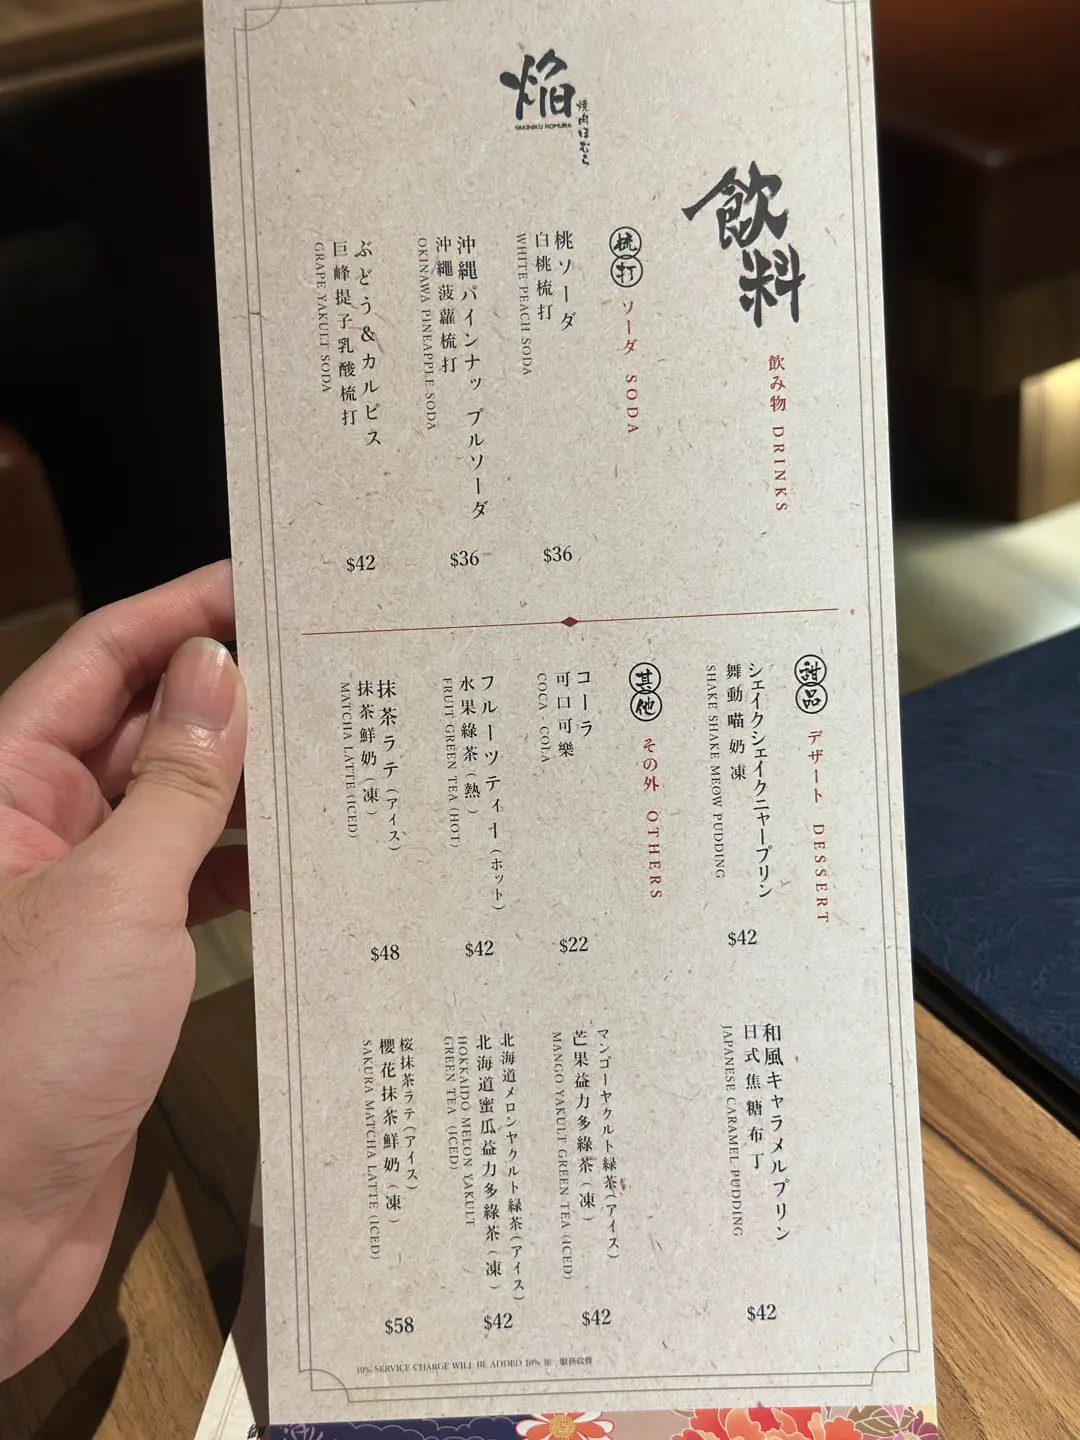 焔
焼肉ほむら
YAKINIKU HOMURA
飲料
飲み物 DRINKS
梳打
ソーダ SODA
桃ソーダ
白桃梳打
WHITE PEACH SODA
$36
沖縄パインナップルソーダ
沖繩菠蘿梳打
OKINAWA PINEAPPLE SODA
$36
ぶどう&カルピス
巨峰提子乳酸梳打
GRAPE YAKULT SODA
$42
甜品
デザート DESSERT
シェイクシェイクニャープリン
舞動喵奶凍
SHAKE SHAKE MEOW PUDDING
$42
和風キャラメルプリン
日式焦糖布丁
JAPANESE CARAMEL PUDDING
$42
其他
その外 OTHERS
コーラ
可口可樂
COCA - COLA
$22
マンゴーヤクルト緑茶(アイス)
芒果益力多綠茶(凍)
MANGO YAKULT GREEN TEA (ICED)
$42
フルーツティー(ホット)
水果綠茶(熱)
FRUIT GREEN TEA (HOT)
$42
北海道メロンヤクルト緑茶(アイス)
北海道蜜瓜益力多綠茶(凍)
HOKKAIDO MELON YAKULT
GREEN TEA (ICED)
$42
抹茶ラテ(アイス)
抹茶鮮奶(凍)
MATCHA LATTE (ICED)
$48
桜抹茶ラテ(アイス)
櫻花抹茶鮮奶(凍)
SAKURA MATCHA LATTE (ICED)
$58
10% SERVICE CHARGE WILL BE ADDED 10% 加一服務收費